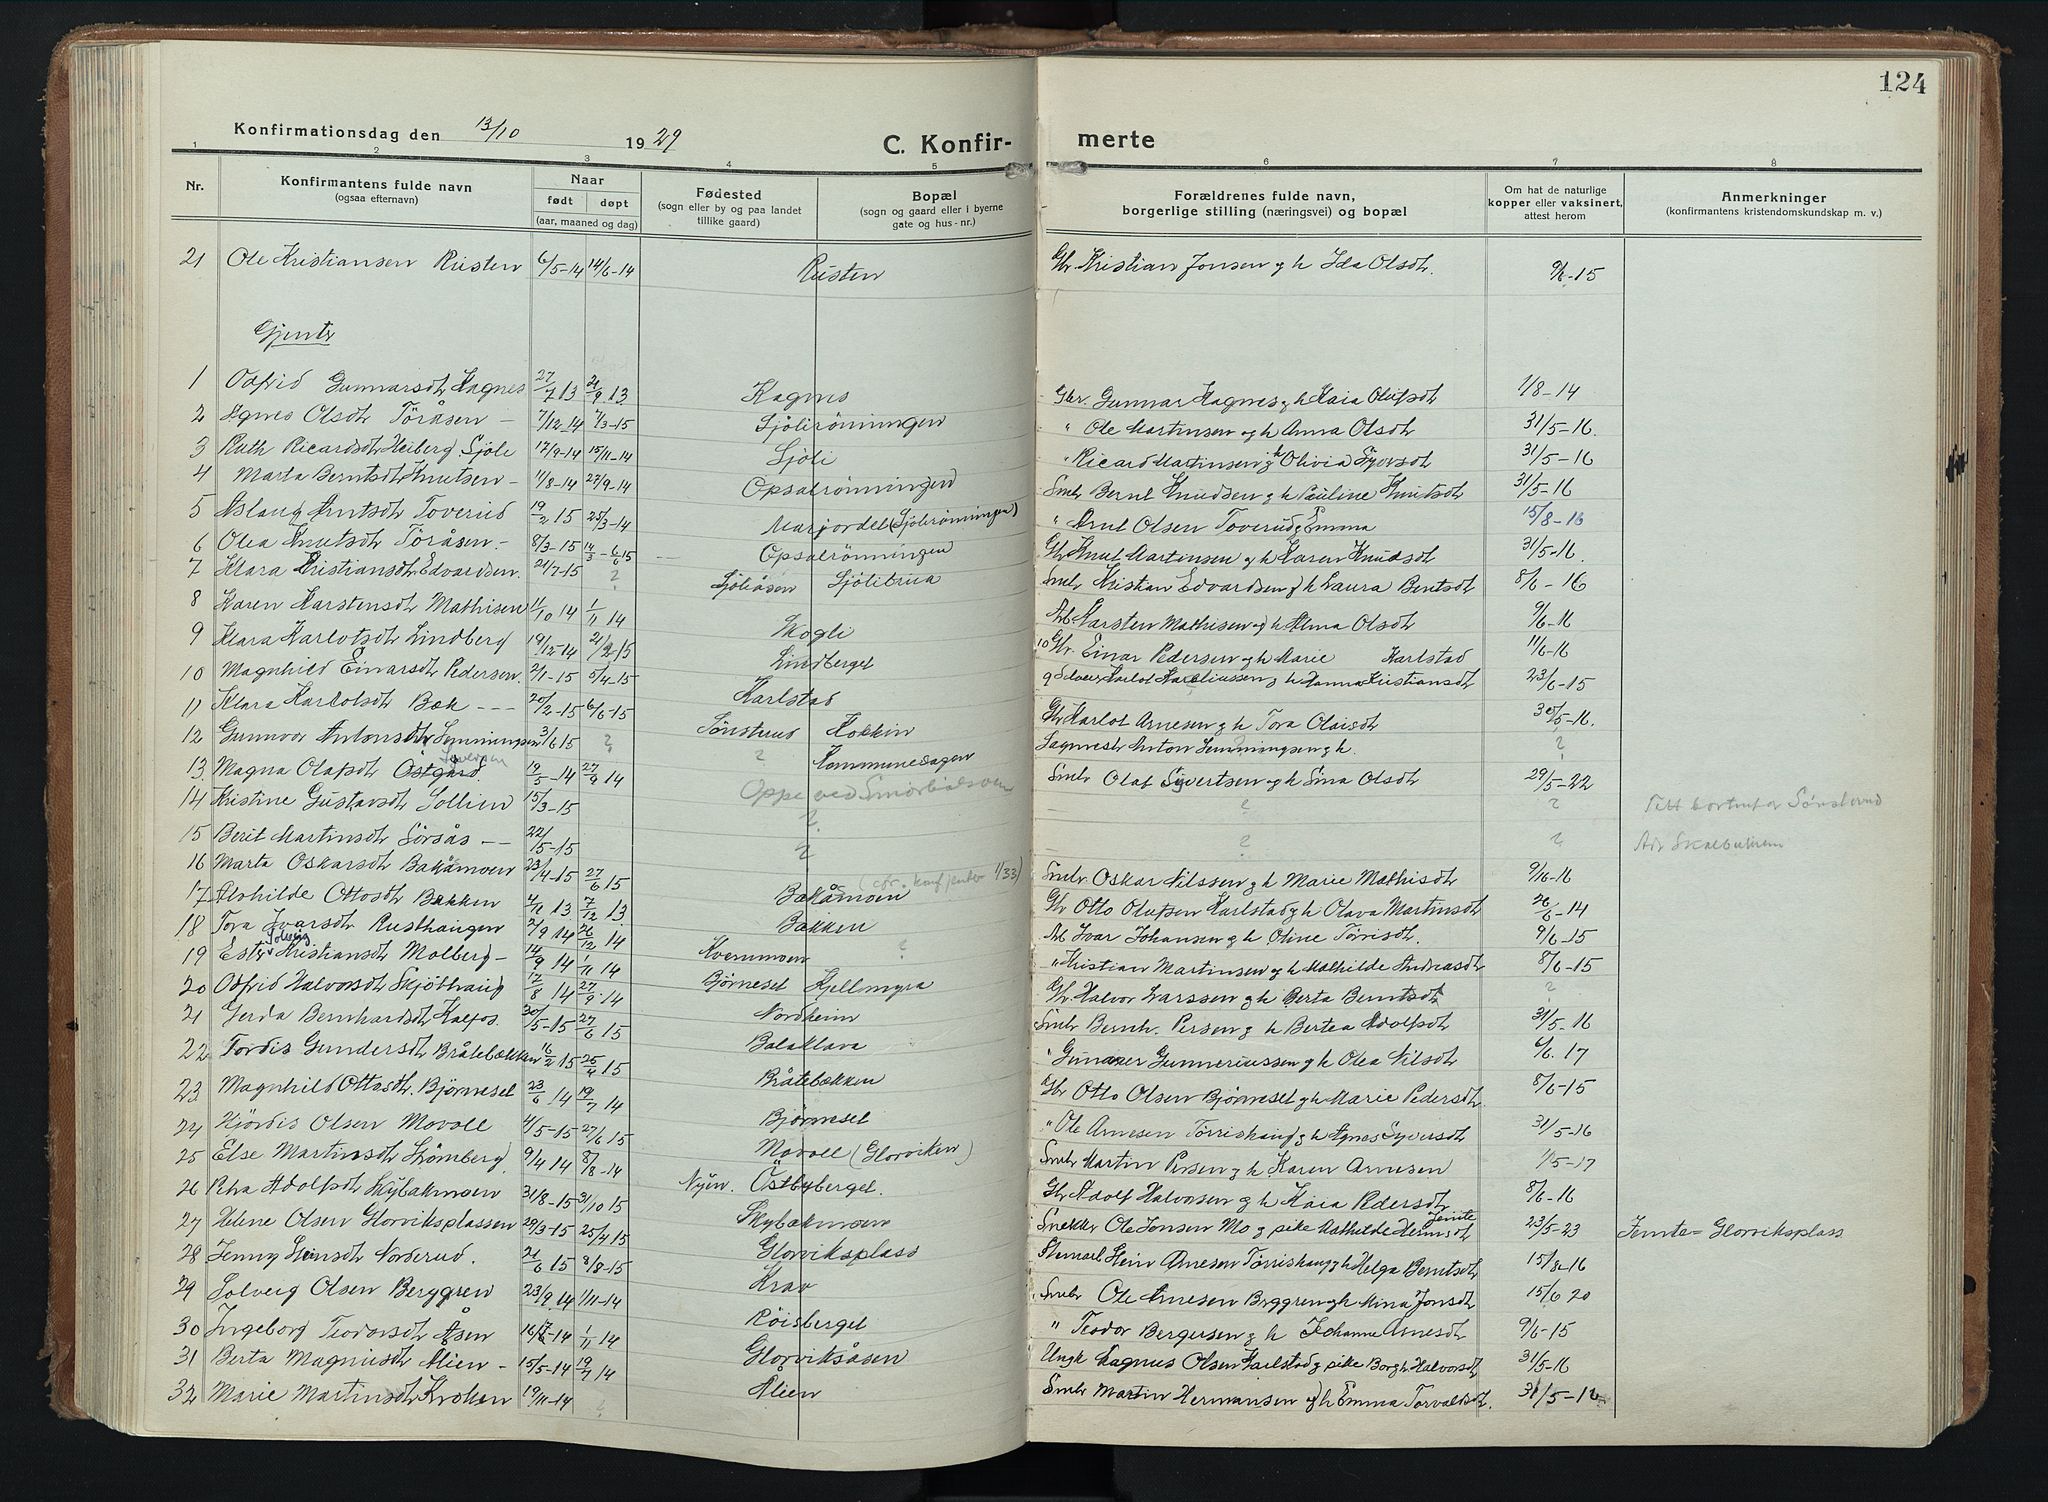 124
Konfirmationsdag den 13/10 1929 C. Konfir- merte
1 2 3 4 5 6 7 8
Nr. Konfirmantens fulde navn (ogsaa efternavn) Naar født døpt (aar, maaned og dag) Fødested (sogn eller by og paa landet tillike gaard) Bopæl (sogn og gaard eller i byerne gate og hus-nr.) Forældrenes fulde navn, borgerlige stilling (næringsvei) og bopæl Om hat de naturlige kopper eller vaksinert, attest herom Anmerkninger (konfirmantens kristendomskundskap m. v.)
21 Ole Kristiansen Rusten 6/5-14 14/6-14 Rusten Gbr. Kristian Jonsen g h Ida Olsdt. 9/6-15
Gjenter
1 Oddfrid Gunnarsdt Kagnes 27/7 13 21/9 13 Kagnes Gbr. Gunnar Kagnes g h Kaia Olufsdt 1/8-14
2 Agnes Olsdt Töråsen - 7/12-14 7/3-15 Sjölirönningen " Ole Martinsen og h Anna Olsdt 31/5-16.
3 Ruth Ricardsdt Heiberg Sjöli 17/9-14 15/11-14 Sjöli " Ricard Martinsen g h Olivia Syversdt 31/5-16
4 Marta Berntsdt Knutsen - 11/8-14 27/9-14 Opsalrönningen Smbr Bernt Knudsen g h Pauline Knutsdt 31/5-16
5 Aslaug Arntsdt Toverud 19/2 15 25/3-14 Marjordet (Sjölirönningen) " Arnt Olsen Toverud g Emma 15/8-16
6 Olea Knutsdt Töråsen - 8/3-15 14/3-6/6 15 Opsalrönningen Gbr Knut Martinsen og h Karen Knudsdt 31/5-16.
7 Klara Kristiansdt Edvardsen. 21/7-15 ? Sjöliåsen Sjölibrua Smbr Kristian Edvardsen g h Laura Bentsdt 8/6-16
8 Karen Karstensdt Mathisen 11/10 14 1/11 14 Skogli Arb Karsten Mathisen og h Alma Olsdt 9/6-16
9 Klara Karlotsdt Lindberg 19/12-14 21/2-15 Lindberget 10 Gbr. Einar Pedersen og h Marie Karlstad 11/6-16
10 Magnhild Einarsdt Pedersen. 2/1-15 5/4-15 Karlstad 9 Selveier Karlot Kareliussen g h Hanna Kristiansdt 23/6-15
11 Klara Karlotsdt Bæk - - - 20/2-15 6/6-15 Sönsterud Kokkin Gbr Karlot Arnesen g h Tora Olaisdt 30/5-16.
12 Gunnvor Antonsdt Semmingsen 3/6 15 ? ? Kommunesagen Sagmestr Anton Semmingsen g h. ?
13 Magna Olafsdt Östgård. Syversen 19/5-14 27/9 14 Oppe ved Smörbolsæter Smbr Olaf Syvertsen og h Sina Olsdt 29/5-22
14 Kristine Gustavsdt Sollien 15/3-15 ? ? ? Titt bortenfor Sönsterud
15 Berit Martinsdt Sörsås - - 22/5-15 ? ? ?
16 Marta Oskarsdt Bakåmoen 23/4-15 27/6 15 (cfr. konf. jenter 1/33) Smbr. Oskar Nilssen g h Marie Mathisdt 9/16-16
17 Alvhilde Ottosdt Bakken 4/11 13 7/12 13 Bakåmoen Gbr Otto Olufsen Karlstad g h Olava Martinsdt 26/6-14
18 Tora Ivarsdt Rusthaugen 2/9 14 26/12 14 Bakken Arb Ivar Johansen g h Oline Törrisdt. 9/6-15
19 Ester Solveig Kristiansdt Molberg - 14/9 14 1/11 14 Kvernmoen ? " Kristian Martinsen og h Mathilde Andreasdt 8/6-15
20 Oddfrid Halvorsdt Skjöthaug 17/8 14 27/9 14 Björneset Kjellmyra Gbr Halvor Larssen g h Berta Berntsdt ?
21 Gerda Bernhardsdt Kalfos. 30/5-15 27/6 15 Nordheim Smbr Bernh. Persen g h Bertea Adolfsdt 31/5-16
22 Tordis Gundersdt Bråtebækken 16/2 15 25/4 15 Balaklava " Gunder Gunneriussen g h Olea Nilsdt 6/6. 17
23 Magnhild Ottosdt. Björneset 23/6 14 19/7 14 Bråtebækken Gbr Otto Olsen Björneset g h Marie Pedersdt 8/6-15
24 Hjördis Olsen Movoll 4/5-15 27/6 15 Björneset " Ole Arnesen Törrishaug g h Agnes Syversdt 31/5-16
25 Else Martinsdt Strömberg 9/4 14 8/8-14 Movoll (Glorviken) Smbr Martin Persen g h Karen Arnesen 1/5-17
26 Petra Adolfsdt Skybakmoen 31/8-15 31/10 15 Nyen. Östbyberget. Gbr Adolf Halvorsen g h Kaia Pedersdt 8/6-16
27 Helene Olsen Glorviksplassen 29/3-15 25/4 15 Skybakmoen Snekker Ole Jonsen Mo g pike Mathilde Hermsdt Jemte 23/5-23 Jemte = Glorviksplass
28 Jenny Steinsdt Norderud. 21/6 15 8/8-15 Glorviksplass Stein Arnesen Törrishaug g h Helga Berntsdt 15/8-16
29 Solveig Olsen Berggren 23/9 14 1/11-14 Krav Smbr Ole Arnesen Berggren g h Mina Jonsdt 15/6 20
30 Ingeborg Teodorsdt Åsen 16/7-14 1/11 14 Röisberget " Teodor Bergersen g h Johanne Arnesdt 9/6-15
31 Berta Magnusdt Alien - 15/5-14 19/7 14 Glorviksåsen Ungk Magnus Olsen Karlstad g pike Borgh Halvorsdt 31/5-16
32 Marie Martinsdt Kroken 19/11-14 ? Alien Smbr Martin Hermansen g h Emma Torvaldsdt. 31/5-16